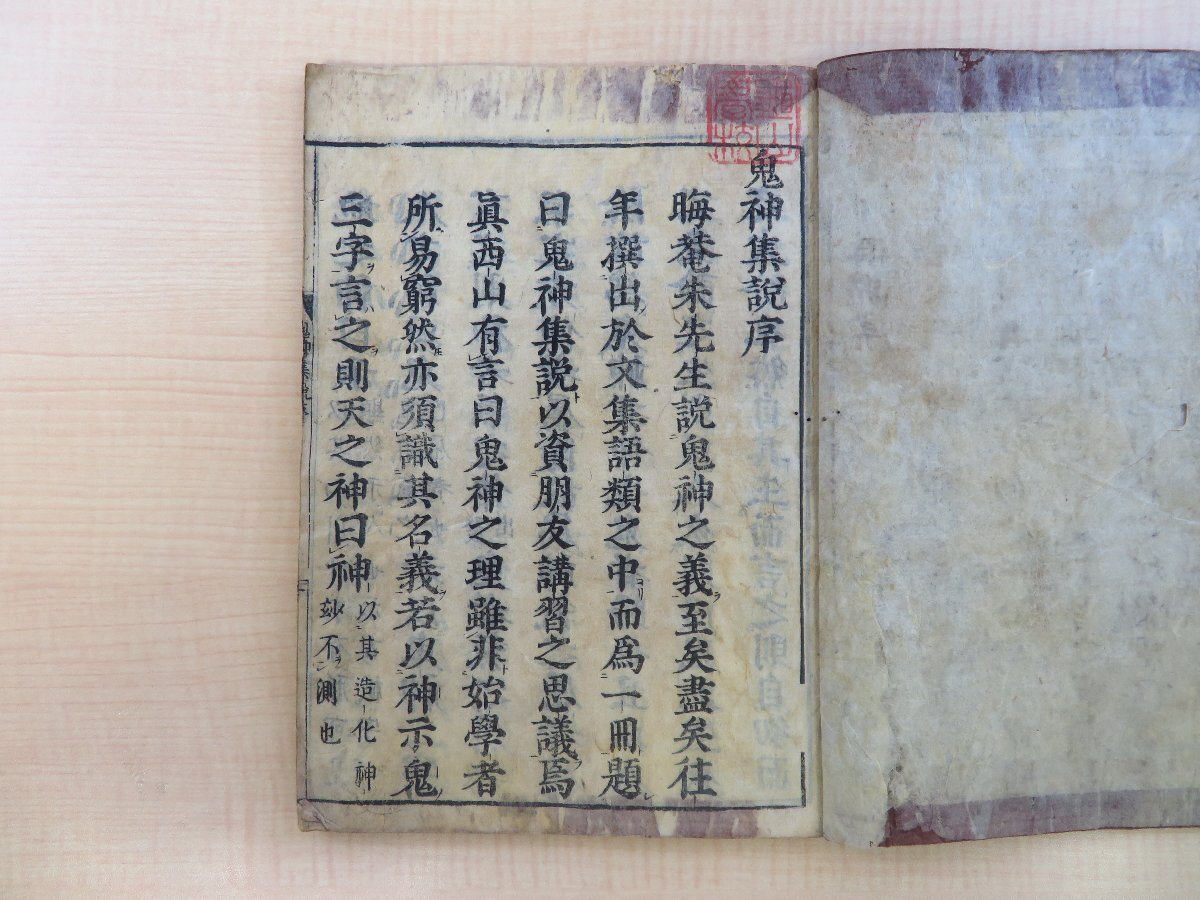 鬼神集說序
晦菴朱先生説鬼神之義至矣盡矣往
年撰出於文集語類之中而爲一冊題
曰鬼神集説以資朋友講習之思議焉
眞西山有言曰鬼神之理雖非始學者
所易窮然亦須識其名義若以神示鬼
三字言之則天之神曰神以其造化神
玅不測也